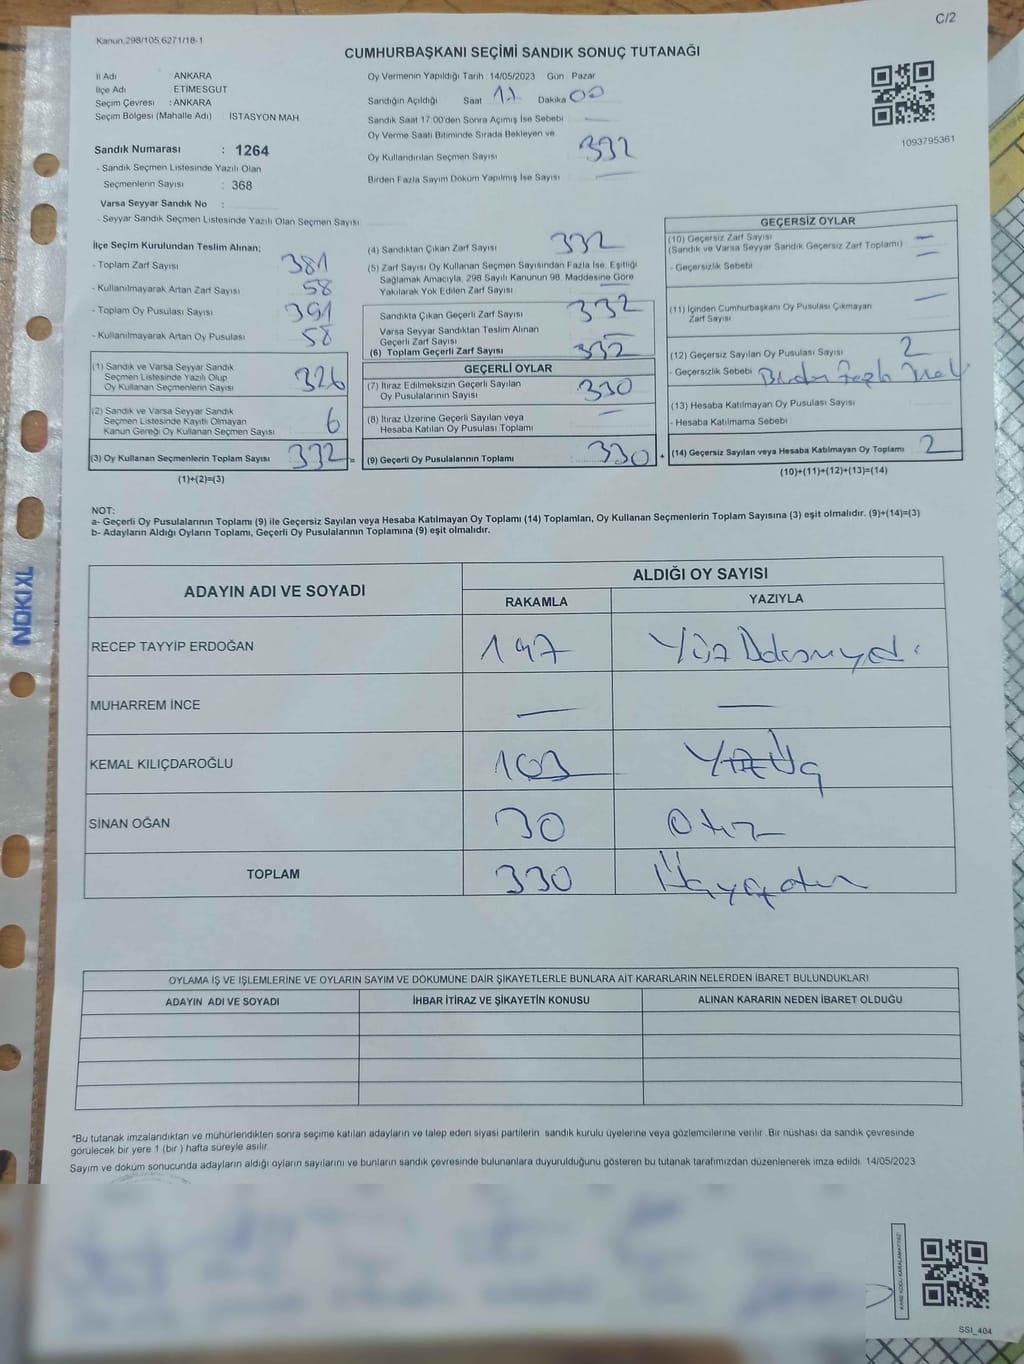 C/2
Kanun.298/105,6271/18-1
CUMHURBAŞKANI SEÇİMİ SANDIK SONUÇ TUTANAĞI
İl Adı : ANKARA
İlçe Adı : ETİMESGUT
Seçim Çevresi : ANKARA
Seçim Bölgesi (Mahalle Adı) İSTASYON MAH.
Sandık Numarası : 1264
- Sandık Seçmen Listesinde Yazılı Olan
Seçmenlerin Sayısı : 368
Varsa Seyyar Sandık No :
- Seyyar Sandık Seçmen Listesinde Yazılı Olan Seçmen Sayısı
Oy Vermenin Yapıldığı Tarih : 14/05/2023 Gün Pazar
Sandığın Açıldığı Saat 17 Dakika 00
Sandık Saat 17:00'den Sonra Açımış İse Sebebi —
Oy Verme Saati Bitiminde Sırada Bekleyen ve
Oy Kullandırılan Seçmen Sayısı 332
Birden Fazla Sayım Döküm Yapılmış İse Sayısı —
1093795361
İlçe Seçim Kurulundan Teslim Alınan;
- Toplam Zarf Sayısı 381
- Kullanılmayarak Artan Zarf Sayısı 58
- Toplam Oy Pusulası Sayısı 391
- Kullanılmayarak Artan Oy Pusulası 58
(1) Sandık ve Varsa Seyyar Sandık
Seçmen Listesinde Yazılı Olup
Oy Kullanan Seçmenlerin Sayısı 326
(2) Sandık ve Varsa Seyyar Sandık
Seçmen Listesinde Kayıtlı Olmayan
Kanun Gereği Oy Kullanan Seçmen Sayısı 6
(3) Oy Kullanan Seçmenlerin Toplam Sayısı 332 =
(1)+(2)=(3)
(4) Sandıktan Çıkan Zarf Sayısı 332
(5) Zarf Sayısı Oy Kullanan Seçmen Sayısından Fazla İse, Eşitliği
Sağlamak Amacıyla, 298 Sayılı Kanunun 98. Maddesine Göre
Yakılarak Yok Edilen Zarf Sayısı
Sandıkta Çıkan Geçerli Zarf Sayısı 332
Varsa Seyyar Sandıktan Teslim Alınan
Geçerli Zarf Sayısı —
(6) Toplam Geçerli Zarf Sayısı 332
GEÇERLİ OYLAR
(7) İtiraz Edilmeksizin Geçerli Sayılan
Oy Pusulalarının Sayısı 330
(8) İtiraz Üzerine Geçerli Sayılan veya
Hesaba Katılan Oy Pusulası Toplamı —
(9) Geçerli Oy Pusulalarının Toplamı 330 +
GEÇERSİZ OYLAR
(10) Geçersiz Zarf Sayısı —
(Sandık ve Varsa Seyyar Sandık Geçersiz Zarf Toplamı) —
- Geçersizlik Sebebi
(11) İçinden Cumhurbaşkanı Oy Pusulası Çıkmayan —
Zarf Sayısı
(12) Geçersiz Sayılan Oy Pusulası Sayısı 2
- Geçersizlik Sebebi Birden Fazla
(13) Hesaba Katılmayan Oy Pusulası Sayısı
- Hesaba Katılmama Sebebi
(14) Geçersiz Sayılan veya Hesaba Katılmayan Oy Toplamı 2
(10)+(11)+(12)+(13)=(14)
NOT:
a- Geçerli Oy Pusulalarının Toplamı (9) ile Geçersiz Sayılan veya Hesaba Katılmayan Oy Toplamı (14) Toplamları, Oy Kullanan Seçmenlerin Toplam Sayısına (3) eşit olmalıdır. (9)+(14)=(3)
b- Adayların Aldığı Oyların Toplamı, Geçerli Oy Pusulalarının Toplamına (9) eşit olmalıdır.
NOKI XL
ADAYIN ADI VE SOYADI ALDIĞI OY SAYISI
RAKAMLA YAZIYLA
RECEP TAYYİP ERDOĞAN 197
MUHARREM İNCE — —
KEMAL KILIÇDAROĞLU 103 Yüz Üç
SİNAN OĞAN 30 Otuz
TOPLAM 330 Üçyüzotuz
OYLAMA İŞ VE İŞLEMLERİNE VE OYLARIN SAYIM VE DÖKÜMÜNE DAİR ŞİKAYETLERLE BUNLARA AİT KARARLARIN NELERDEN İBARET BULUNDUKLARI
ADAYIN ADI VE SOYADI İHBAR İTİRAZ VE ŞİKAYETİN KONUSU ALINAN KARARIN NEDEN İBARET OLDUĞU
*Bu tutanak imzalandıktan ve mühürlendikten sonra seçime katılan adayların ve talep eden siyasi partilerin sandık kurulu üyelerine veya gözlemcilerine verilir. Bir nüshası da sandık çevresinde
görülecek bir yere 1 (bir ) hafta süreyle asılır.
Sayım ve döküm sonucunda adayların aldığı oyların sayılarını ve bunların sandık çevresinde bulunanlara duyurulduğunu gösteren bu tutanak tarafımızdan düzenlenerek imza edildi. 14/05/2023
KARE KODU KARALAMAYINIZ!
SSI_404